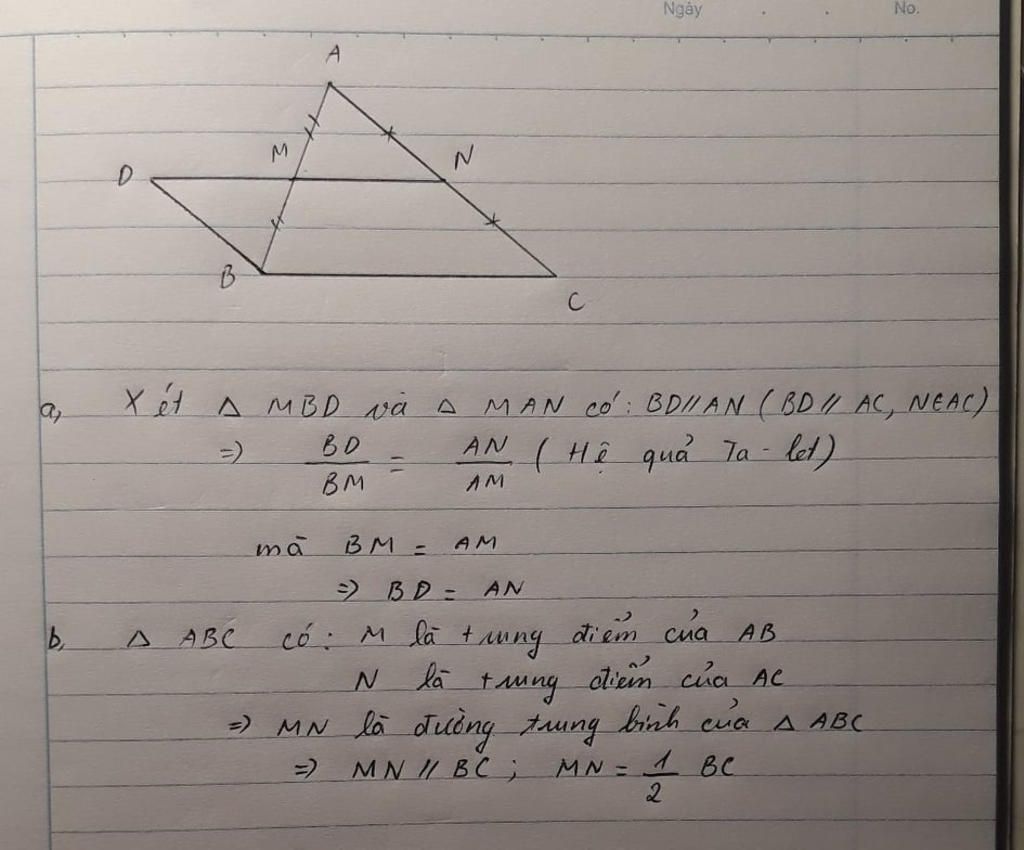 Ngày . . No.
A
M
N
D
B
C
a, Xét △ MBD và △ MAN có: BD//AN (BD // AC, N∈AC)
=> BD/BM = AN/AM (Hệ quả Ta-let)
mà BM = AM
=> BD = AN
b, △ ABC có: M là trung điểm của AB
N là trung điểm của AC
=> MN là đường trung bình của △ ABC
=> MN // BC ; MN = 1/2 BC